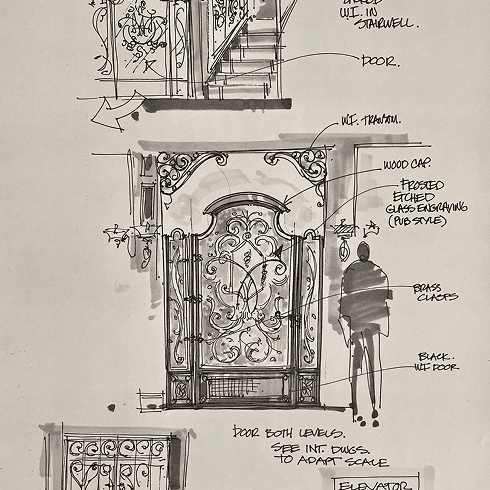 W.I. IN
STAIRWELL.
DOOR.
W.I. TRANSOM.
WOOD CAP.
FROSTED
ETCHED
GLASS ENGRAVING
(PUB STYLE)
BRASS
CLASPS
BLACK.
W.I. DOOR
DOOR BOTH LEVELS.
SEE INT. DWGS.
TO ADAPT SCALE
ELEVATOR